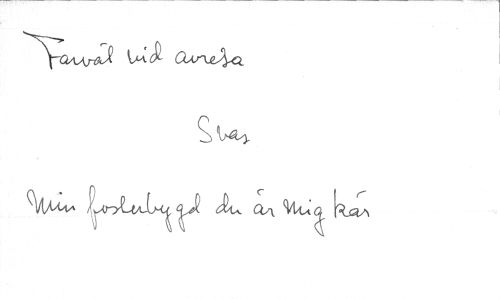 Farväl vid avresa
Svas
Min fosterbygd du är mig kär